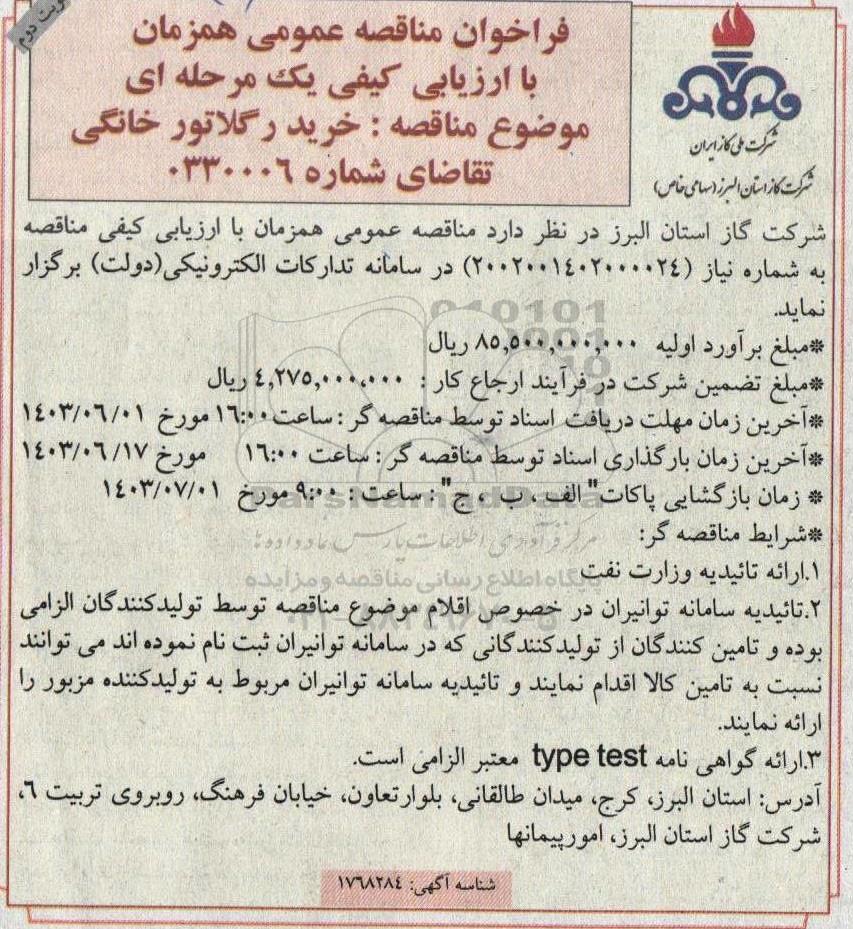 نوبت دوم
فراخوان مناقصه عمومی همزمان
با ارزیابی کیفی یک مرحله ای
موضوع مناقصه : خرید رگلاتور خانگی
تقاضای شماره ۰۳۳۰۰۰۶
شرکت ملی گاز ایران
شرکت گاز استان البرز (سهامی خاص)
شرکت گاز استان البرز در نظر دارد مناقصه عمومی همزمان با ارزیابی کیفی مناقصه
به شماره نیاز (۲۰۰۲۰۰۱۴۰۲۰۰۰۰۲۴) در سامانه تدارکات الکترونیکی(دولت) برگزار
نماید.
*مبلغ برآورد اولیه ۸۵,۵۰۰,۰۰۰,۰۰۰ ریال
*مبلغ تضمین شرکت در فرآیند ارجاع کار : ۴,۲۷۵,۰۰۰,۰۰۰ ریال
*آخرین زمان مهلت دریافت اسناد توسط مناقصه گر : ساعت ۱۶:۰۰ مورخ ۱۴۰۳/۰۶/۰۱
*آخرین زمان بارگذاری اسناد توسط مناقصه گر : ساعت ۱۶:۰۰ مورخ ۱۴۰۳/۰۶/۱۷
* زمان بازگشایی پاکات" الف ، ب ، ج" : ساعت : ۹:۰۰ مورخ ۱۴۰۳/۰۷/۰۱
*شرایط مناقصه گر:
۱.ارائه تائیدیه وزارت نفت
۲.تائیدیه سامانه توانیران در خصوص اقلام موضوع مناقصه توسط تولیدکنندگان الزامی
بوده و تامین کنندگان از تولیدکنندگانی که در سامانه توانیران ثبت نام نموده اند می توانند
نسبت به تامین کالا اقدام نمایند و تائیدیه سامانه توانیران مربوط به تولیدکننده مزبور را
ارائه نمایند.
۳.ارائه گواهی نامه type test معتبر الزامی است.
آدرس: استان البرز، کرج، میدان طالقانی، بلوارتعاون، خیابان فرهنگ، روبروی تربیت ۶،
شرکت گاز استان البرز، امورپیمانها
شناسه آگهی: ۱۷۶۸۲۸۴
ParsNamadData
مرکز فرآوری اطلاعات پارس نماد داده ها
پایگاه اطلاع رسانی مناقصه و مزایده